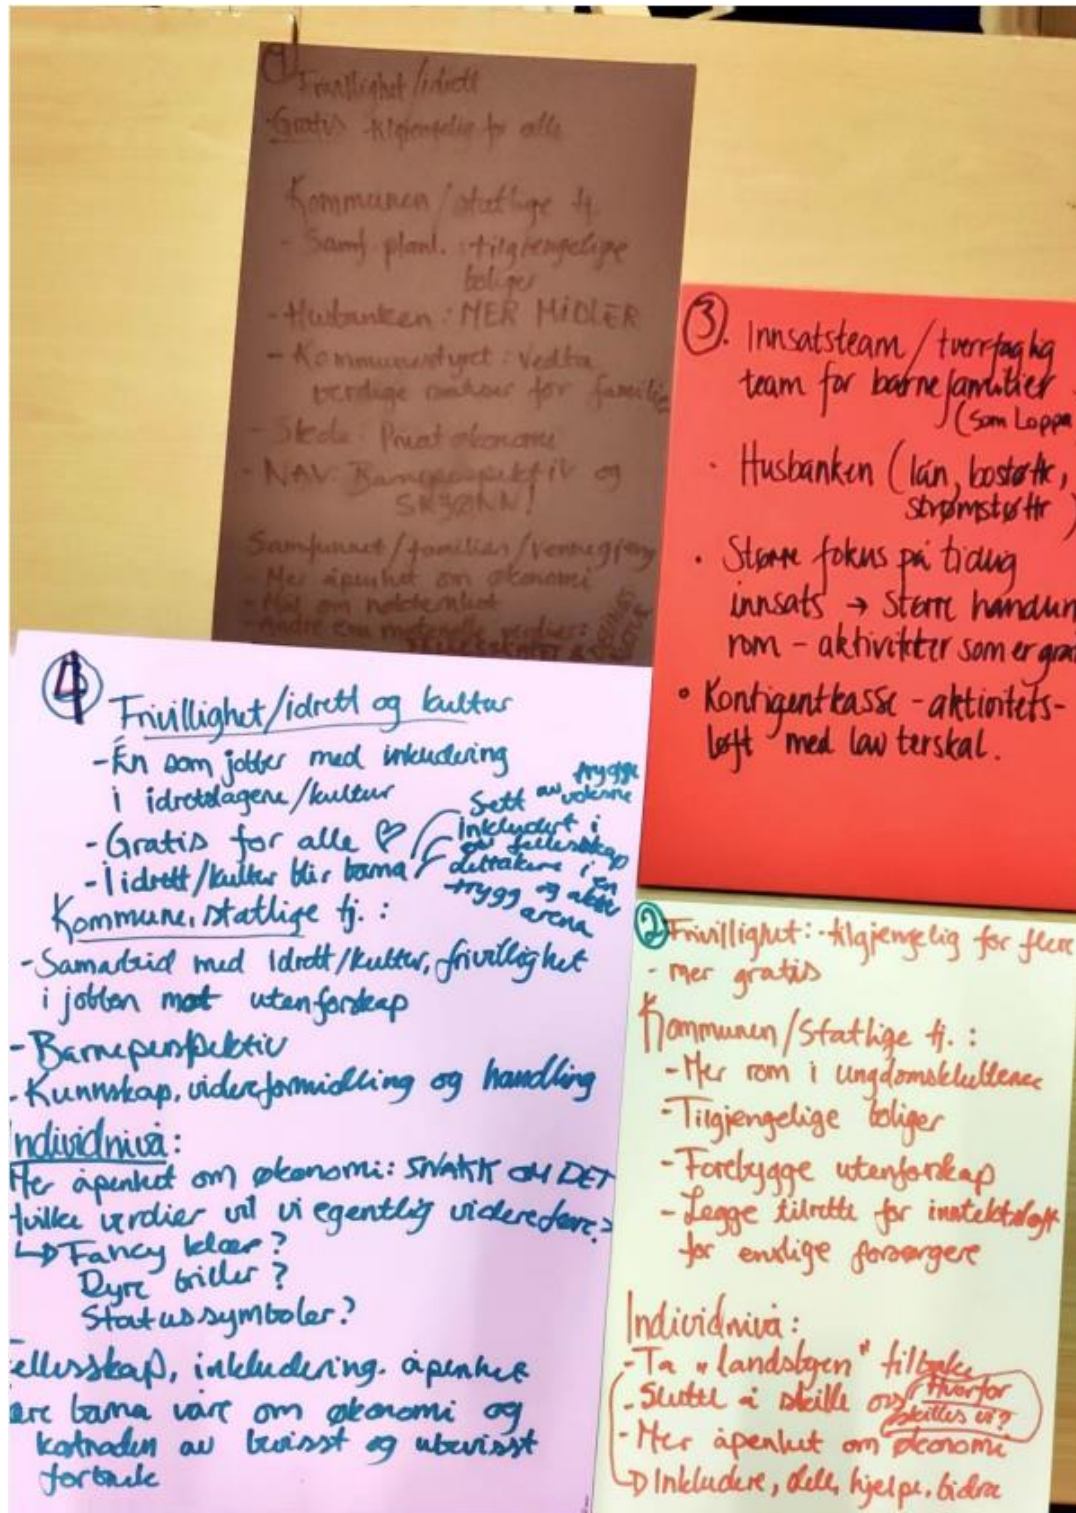 1
Frivillighet/idrett
- Gratis tilgjengelig for alle
Kommunen/statlige tj.
- Samf. planl.: tilgjengelige
boliger
- Husbanken: MER MIDLER
- Kommunestyret: Vedta
verdige for familie
- Privatøkonomi
- NAV: Barneperspektiv og
SKJØNN!
Samfunnet/familien/vennegjeng
- Mer åpenhet om økonomi
- Andre enn materielle verdier:
3. Innsatsteam/tverrfaglig
team for barnefamilier
(som Loppa
· Husbanken (lån, bostøtte,
strømstøtte)
· Større fokus på tidlig
innsats → Større handlin
rom - aktiviteter som er grat
· Kontigentkasse - aktivitets-
løft med lav terskal.
4 Frivillighet/idrett og kultur
- Én som jobber med inkludering
i idrettslagene/kultur
- Gratis for alle ♡
- I idrett/kultur blir barna
Sett av trygge
voksne
inkludert i
fellesskap
deltakere i en
trygg og aktiv
arena
Kommune, statlige tj.:
- Samarbeid med idrett/kultur, frivillighet
i jobben mot utenforskap
- Barneperspektiv
- Kunnskap, videreformidling og handling
Individnivå:
Mer åpenhet om økonomi: SNAKK OM DET
Hvilke verdier vil vi egentlig videreføre?
↳ Fancy klær?
Dyre briller?
Statussymboler?
ellesskap, inkludering. åpenhet
ære barna våre om økonomi og
kostnaden av bevisst og ubevisst
forbruk
2 Frivillighet: - tilgjengelig for flere
- mer gratis
Kommunen/Statlige tj.:
- Mer rom i ungdomsklubbene
- Tilgjengelige boliger
- Forebygge utenforskap
- Legge tilrette for inntektsløft
for enslige forsørgere
Individnivå:
- Ta "landsbyen" tilbake
- Slutte å skille oss
Hvorfor
skilles vi?
- Mer åpenhet om økonomi
→ Inkludere, dele, hjelpe, bidra